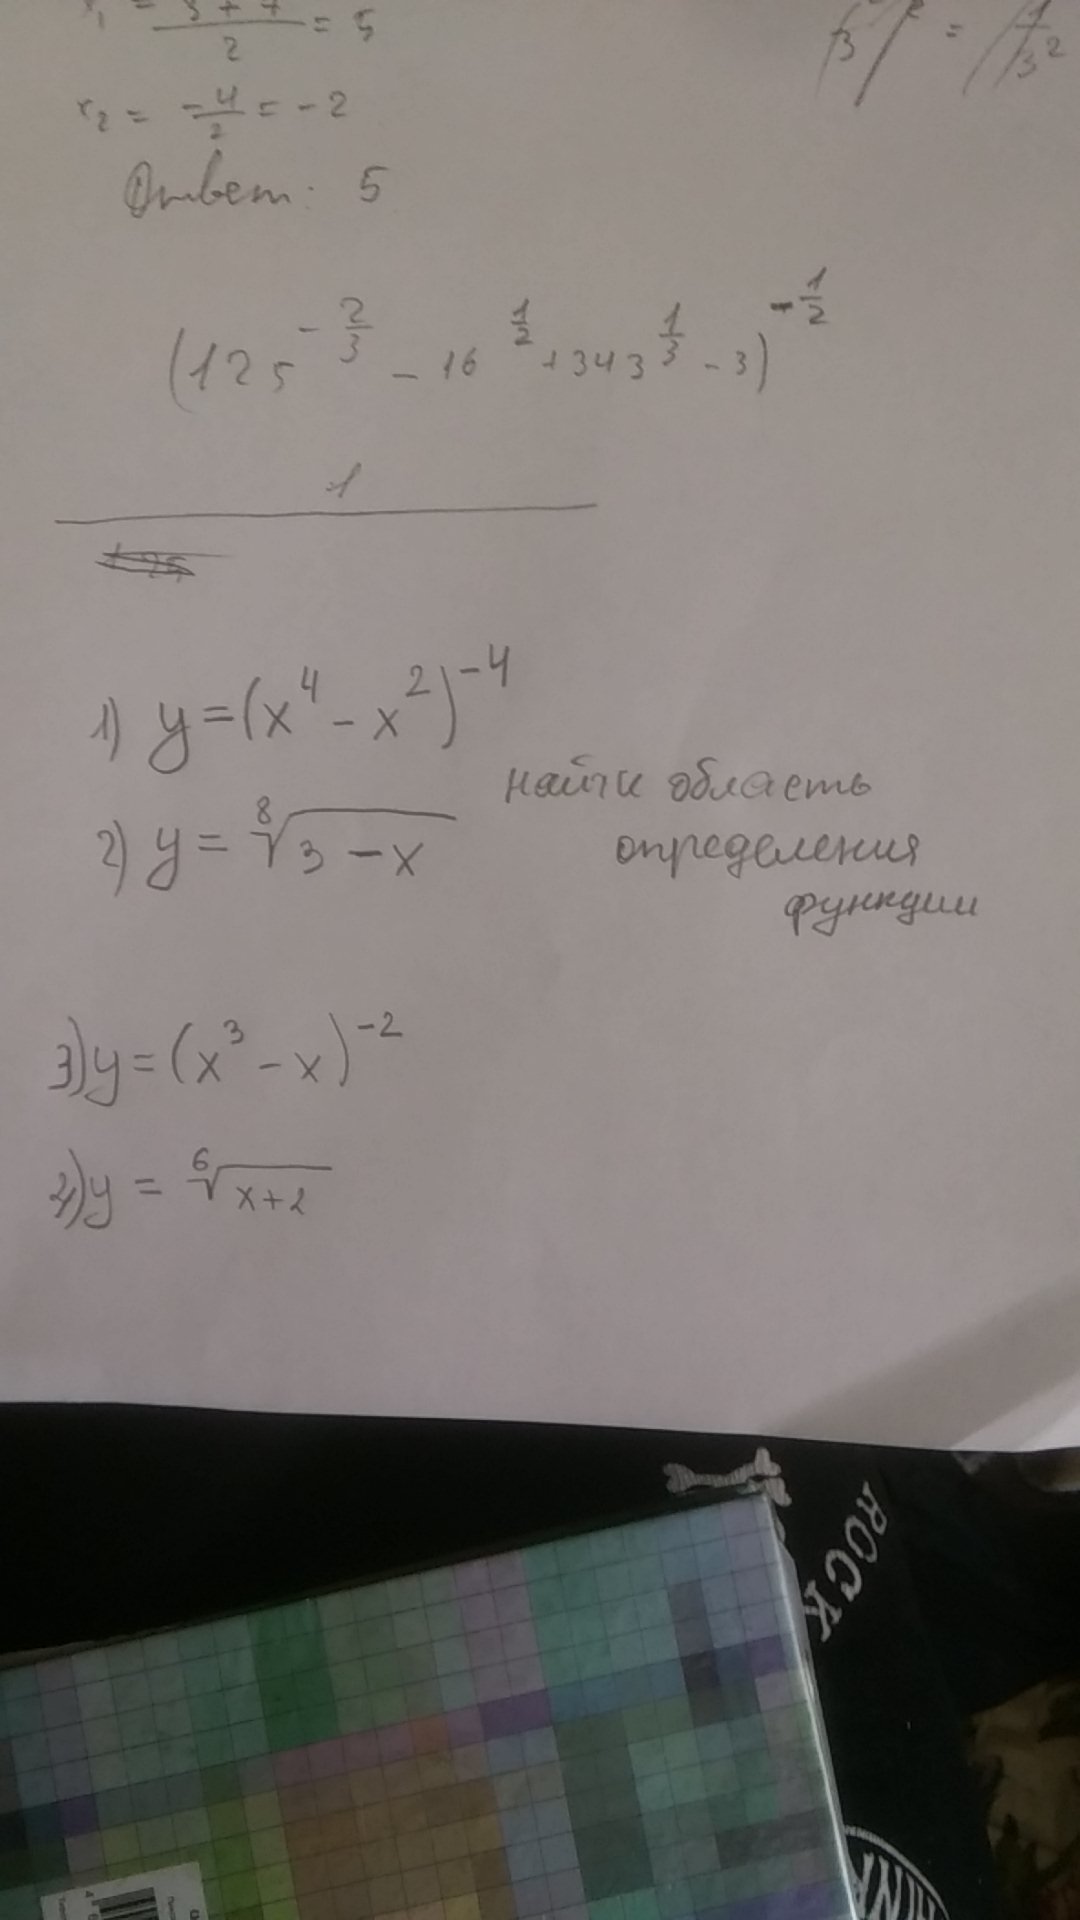 = 5
x₂ = -4/2 = -2
Ответ: 5
(125^(-2/3) - 16^(1/2) + 343^(1/3) - 3)^(-1/2)
1
1) y = (x⁴ - x²)⁻⁴
найти область
2) y = ⁸√(3 - x)
определения
функции
3) y = (x³ - x)⁻²
4) y = ⁶√(x+2)
ROCK